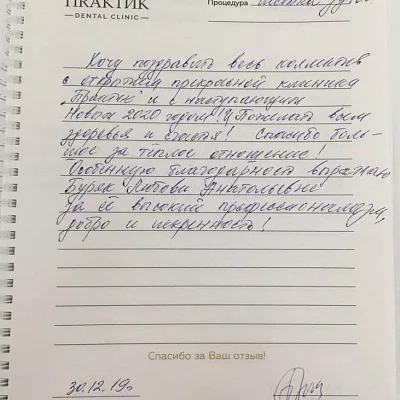 ПРАКТИК
DENTAL CLINIC
Процедура
Хочу поздравить весь коллектив
с открытием прекрасной клиники
„Практик" и с наступающим
Новым 2020 годом! Пожелать всем
здоровья и счастья! Спасибо боль-
шое за тёплое отношение!
Особенную благодарность выражаю
Бурак Любови Анатольевне
за её высокий профессионализм,
добро и искренность!
Спасибо за Ваш отзыв!
30.12.19г